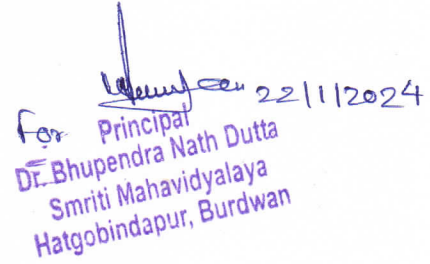 22/1/2024
For Principal
Dr. Bhupendra Nath Dutta
Smriti Mahavidyalaya
Hatgobindapur, Burdwan